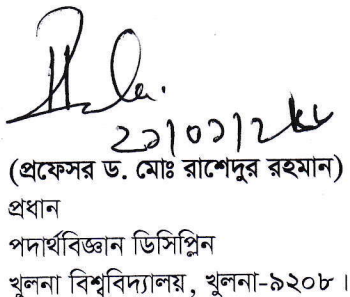 (প্রফেসর ড. মোঃ রাশেদুর রহমান)
প্রধান
পদার্থবিজ্ঞান ডিসিপ্লিন
খুলনা বিশ্ববিদ্যালয়, খুলনা-৯২০৮।